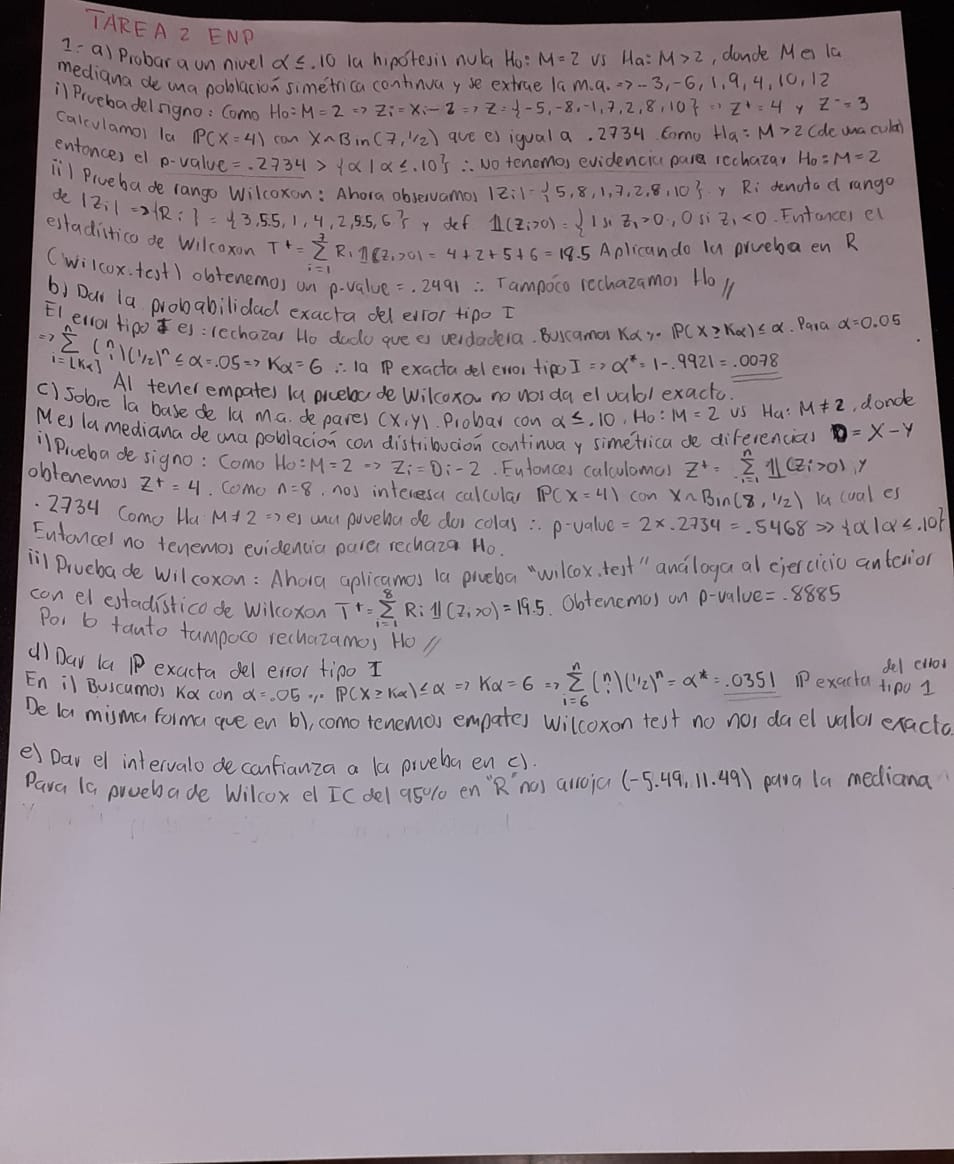 TAREA 2 ENP
1.- a) Probar a un nivel α ≤ .10 la hipótesis nula H₀: M = 2 vs Ha: M > 2, donde M es la
mediana de una población simétrica continua y se extrae la m.a. => -3, -6, 1, 9, 4, 10, 12
i) Prueba del signo: Como H₀: M = 2 => Zi = Xi - 2 => Z = {-5, -8, -1, 7, 2, 8, 10} ∴ Z⁺ = 4 y Z⁻ = 3
Calculamos la ℙ(X = 4) con X ~ Bin(7, 1/2) que es igual a .2734 Como Ha: M > 2 (de una cola)
entonces el p-value = .2734 > {α | α ≤ .10} ∴ No tenemos evidencia para rechazar H₀: M = 2
ii) Prueba de rango Wilcoxon: Ahora observamos |Zi| = {5, 8, 1, 7, 2, 8, 10} y Ri denota el rango
de |Zi| => {Ri} = {3, 5.5, 1, 4, 2, 5.5, 6} y def 𝟙(Zi>0) = {1 si Zi > 0, 0 si Zi < 0. Entonces el
estadístico de Wilcoxon T⁺ = Σ Ri 𝟙(Zi>0) = 4 + 2 + 5 + 6 = 18.5 Aplicando la prueba en R
(wilcox.test) obtenemos un p-value = .2491 ∴ Tampoco rechazamos H₀ //
b) Dar la probabilidad exacta del error tipo I
El error tipo I es: rechazar H₀ dado que es verdadera. Buscamos Kα ∋ ℙ(X ≥ Kα) ≤ α. Para α = 0.05
=> Σ_{i=[Kα]}^{n} (n i)(1/2)ⁿ ≤ α = .05 => Kα = 6 ∴ la ℙ exacta del error tipo I => α* = 1 - .9921 = .0078
Al tener empates la prueba de Wilcoxon no nos da el valor exacto.
c) Sobre la base de la m.a. de pares (X, Y). Probar con α ≤ .10, H₀: M = 2 vs Ha: M ≠ 2, donde
M es la mediana de una población con distribución continua y simétrica de diferencias D = X - Y
i) Prueba de signo: Como H₀: M = 2 => Zi = Di - 2. Entonces calculamos Z⁺ = Σ_{i=1}^{n} 𝟙(Zi>0), y
obtenemos Z⁺ = 4. Como n = 8, nos interesa calcular ℙ(X = 4) con X ~ Bin(8, 1/2) la cual es
.2734 Como Ha M ≠ 2 => es una prueba de dos colas ∴ p-value = 2 × .2734 = .5468 >> {α | α ≤ .10}
Entonces no tenemos evidencia para rechaza H₀.
ii) Prueba de Wilcoxon: Ahora aplicamos la prueba "wilcox.test" análoga al ejercicio anterior
con el estadístico de Wilcoxon T⁺ = Σ_{i=1}^{8} Ri 𝟙(Zi>0) = 19.5. Obtenemos un p-value = .8885
Por lo tanto tampoco rechazamos H₀ //
d) Dar la ℙ exacta del error tipo I
En i) Buscamos Kα con α = .05 ∋ ℙ(X ≥ Kα) ≤ α => Kα = 6 => Σ_{i=6}^{n} (n i)(1/2)ⁿ = α* = .0351 ℙ exacta del error tipo 1
De la misma forma que en b), como tenemos empates Wilcoxon test no nos da el valor exacto.
e) Dar el intervalo de confianza a la prueba en c).
Para la prueba de Wilcox el IC del 95% en "R" nos arroja (-5.49, 11.49) para la mediana